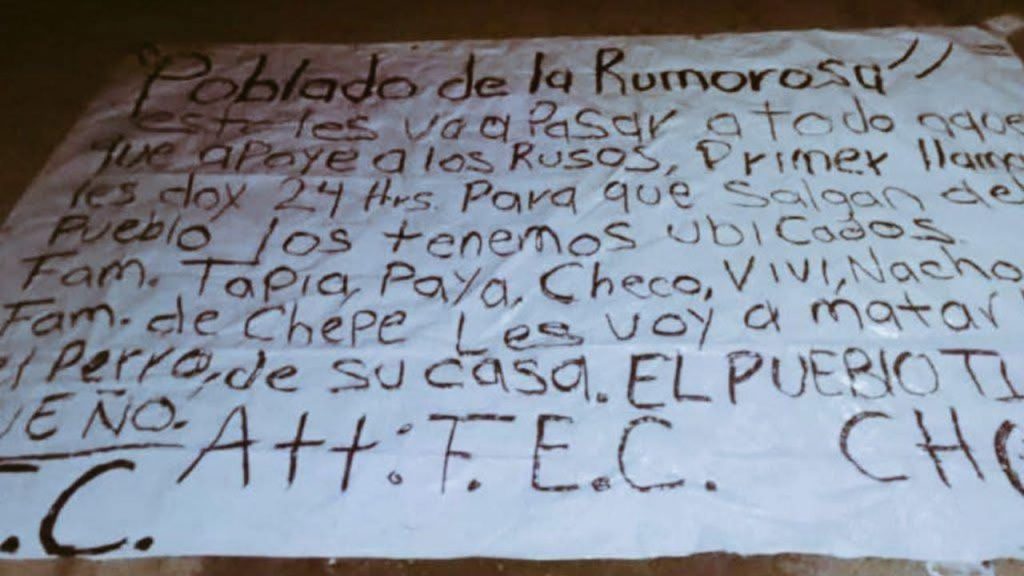 "Poblado de la Rumorosa"
esto les va a Pasar a todo aque
que apoye a los Rusos, Primer llama
les doy 24 Hrs. Para que Salgan del
Pueblo los tenemos ubicados.
Fam. Tapia, Paya, Checo, Vivi, Nacho,
Fam. de Chepe Les voy a matar
el Perro, de su casa. EL PUEBlO TI
UEÑO. Att: F.E.C. CH
.C.